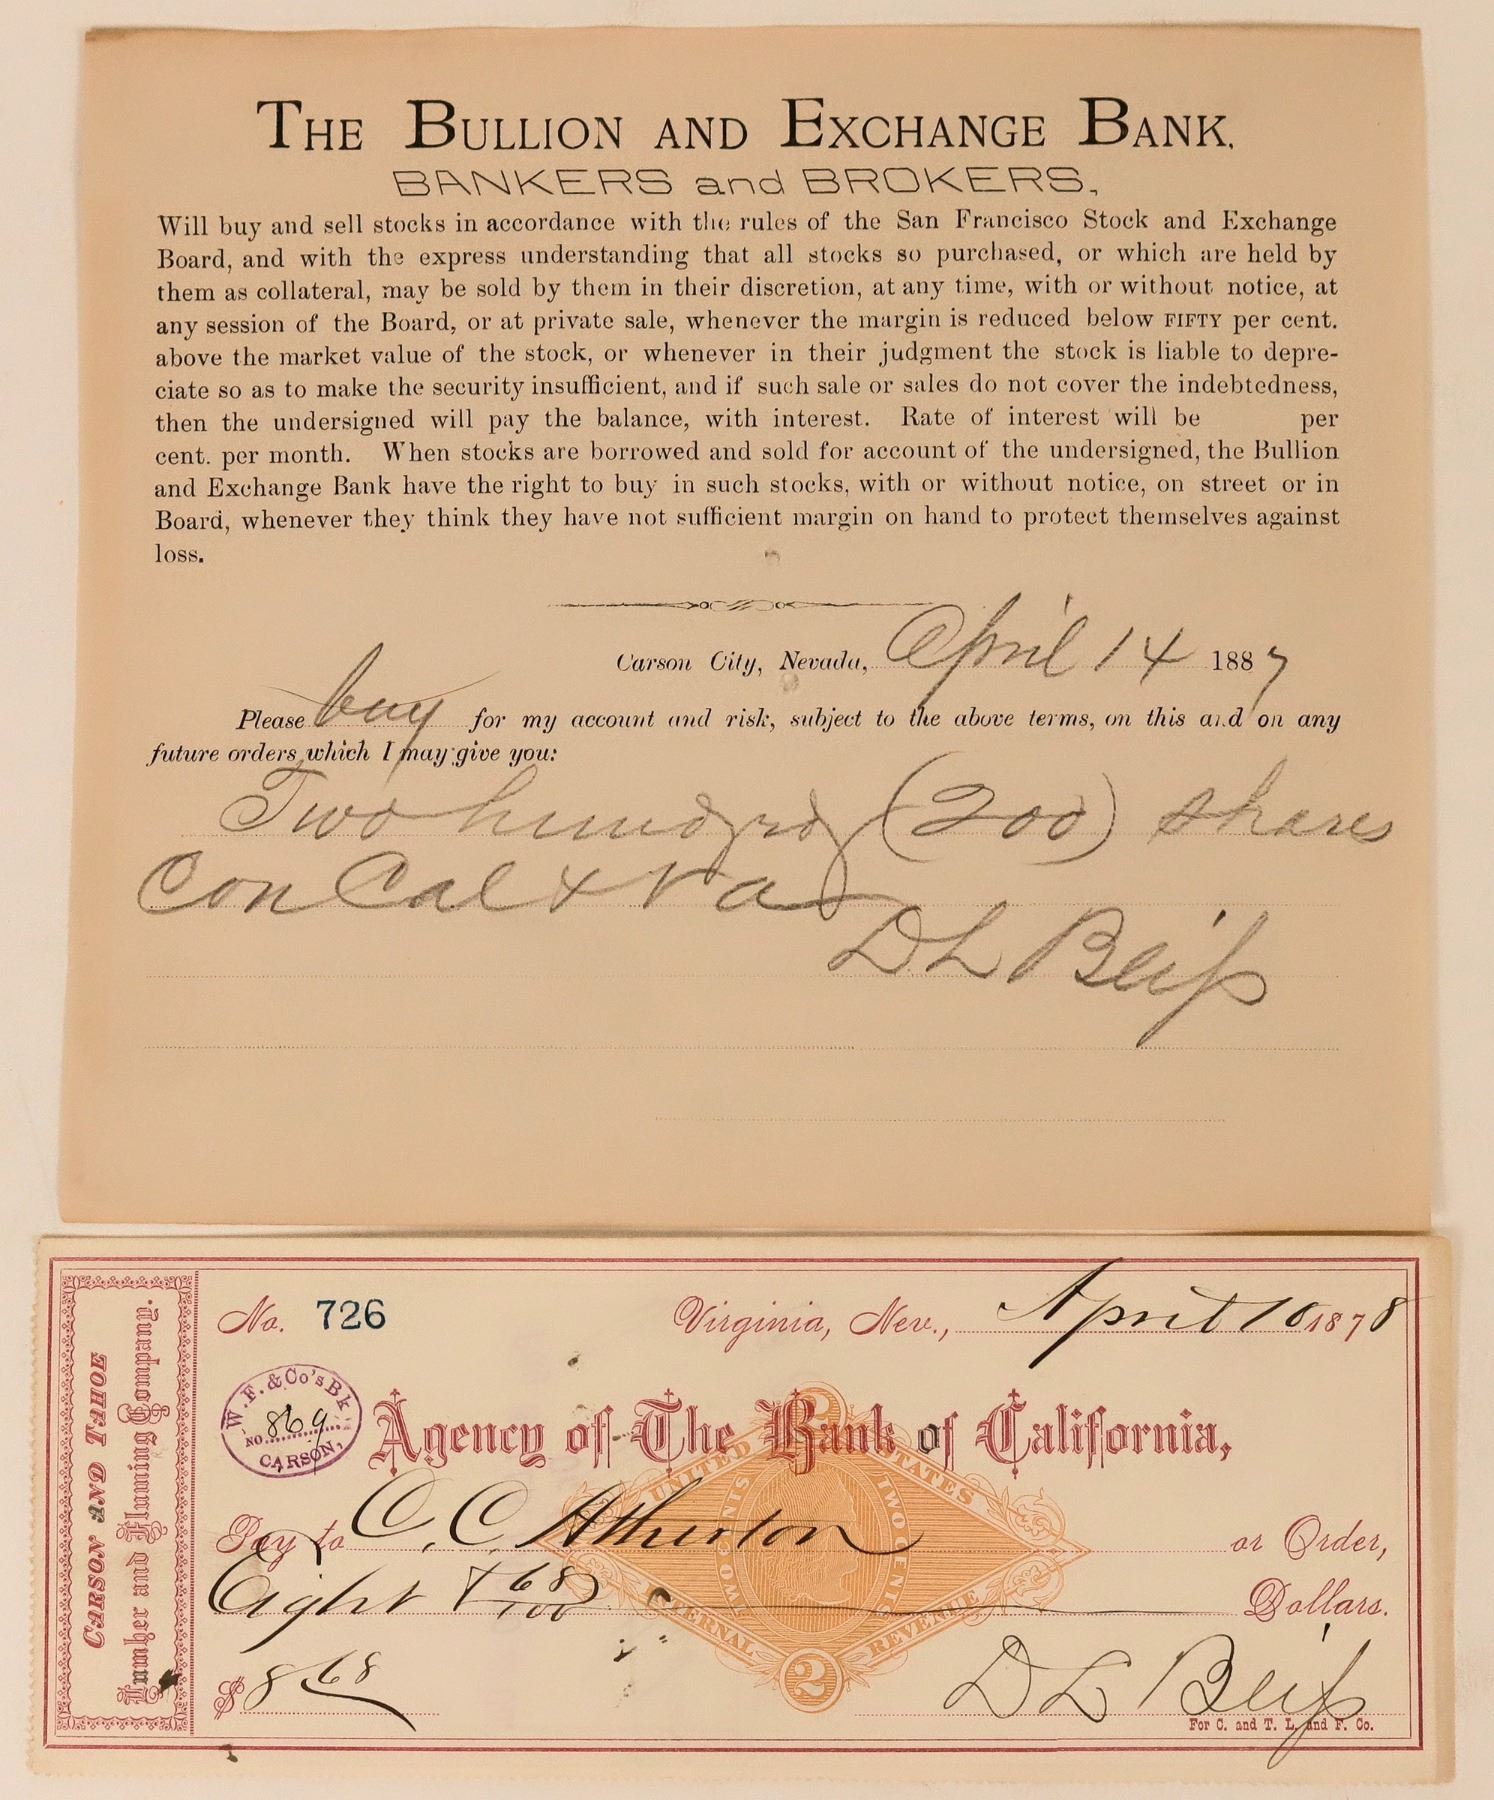 THE BULLION AND EXCHANGE BANK,
BANKERS and BROKERS,
Will buy and sell stocks in accordance with the rules of the San Francisco Stock and Exchange
Board, and with the express understanding that all stocks so purchased, or which are held by
them as collateral, may be sold by them in their discretion, at any time, with or without notice, at
any session of the Board, or at private sale, whenever the margin is reduced below FIFTY per cent.
above the market value of the stock, or whenever in their judgment the stock is liable to depre-
ciate so as to make the security insufficient, and if such sale or sales do not cover the indebtedness,
then the undersigned will pay the balance, with interest. Rate of interest will be per
cent. per month. When stocks are borrowed and sold for account of the undersigned, the Bullion
and Exchange Bank have the right to buy in such stocks, with or without notice, on street or in
Board, whenever they think they have not sufficient margin on hand to protect themselves against
loss.
Carson City, Nevada, April 14 1887
Please buy for my account and risk, subject to the above terms, on this and on any
future orders which I may give you:
Two hundred (200) shares
Con Cal & Va
D L Bliss
CARSON AND TAHOE
Lumber and Fluming Company.
No. 726
Virginia, Nev., April 10 1878
W. F. & Co's Bk
NO. 869
CARSON,
Agency of The Bank of California,
UNITED STATES
TWO CENTS
TWO CENTS
INTERNAL REVENUE
2
2
Pay to C. C. Atherton or Order,
Eight & 68/100 Dollars.
$8 68
D L Bliss
For C. and T. L. and F. Co.